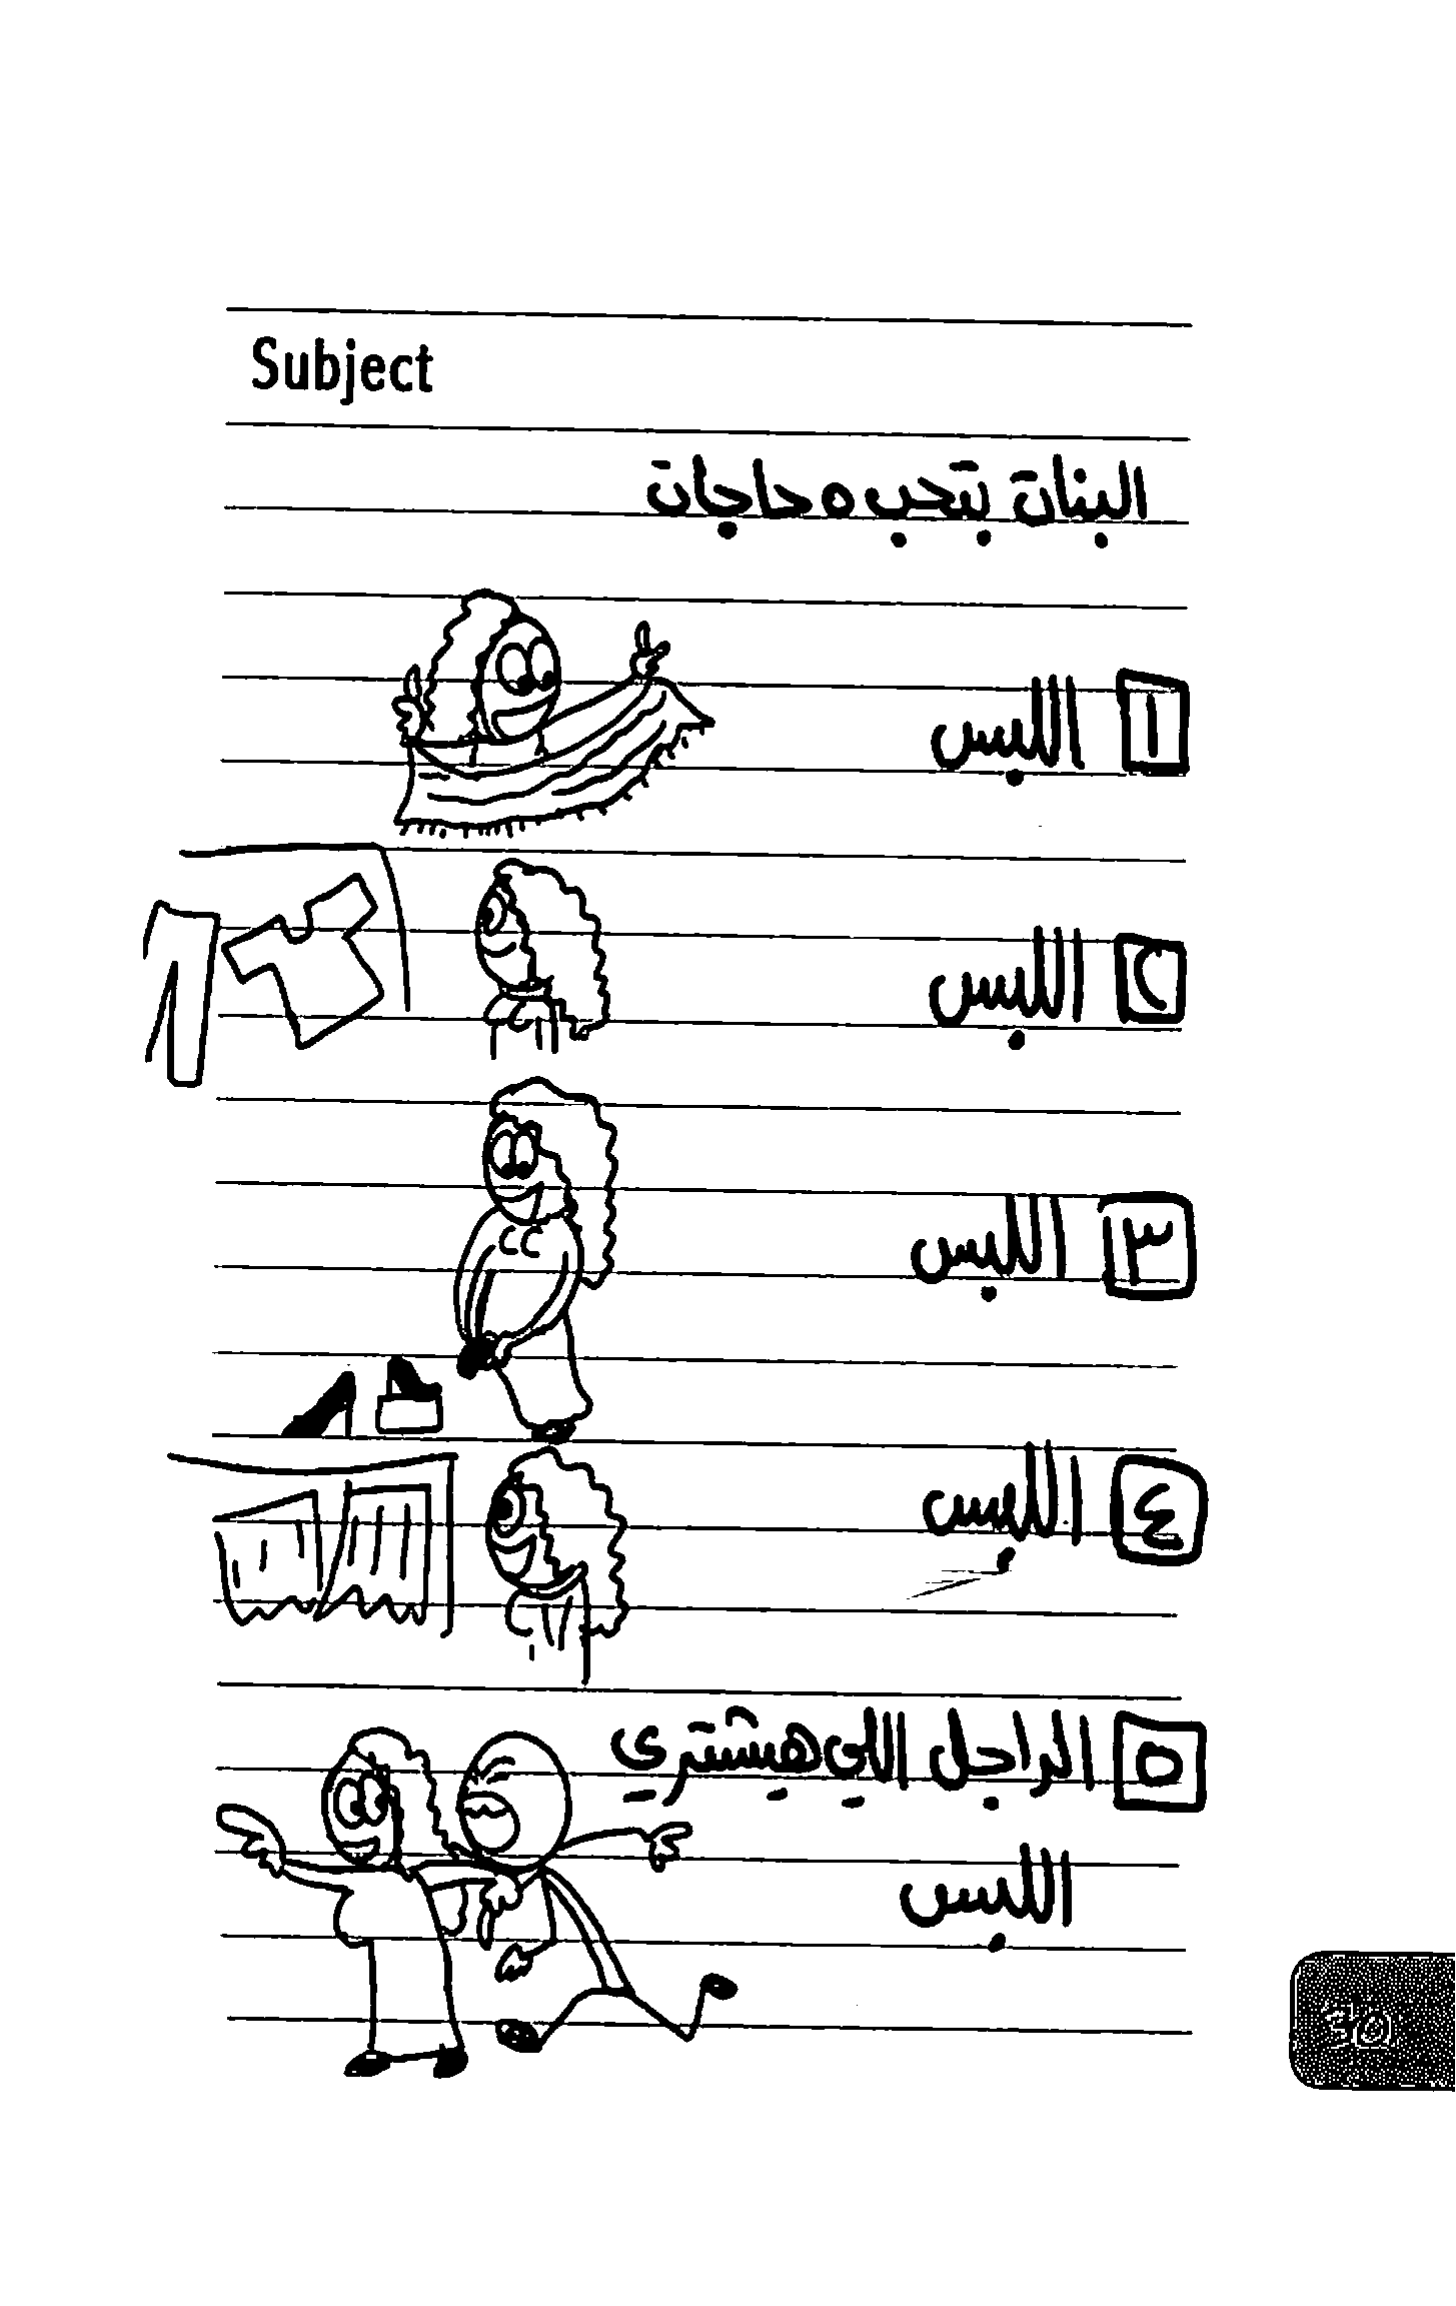 Subject
البنات بتحب ٥ حاجات
١ اللبس
٢ اللبس
٣ اللبس
٤ اللبس
٥ الراجل اللي هيشتري
اللبس